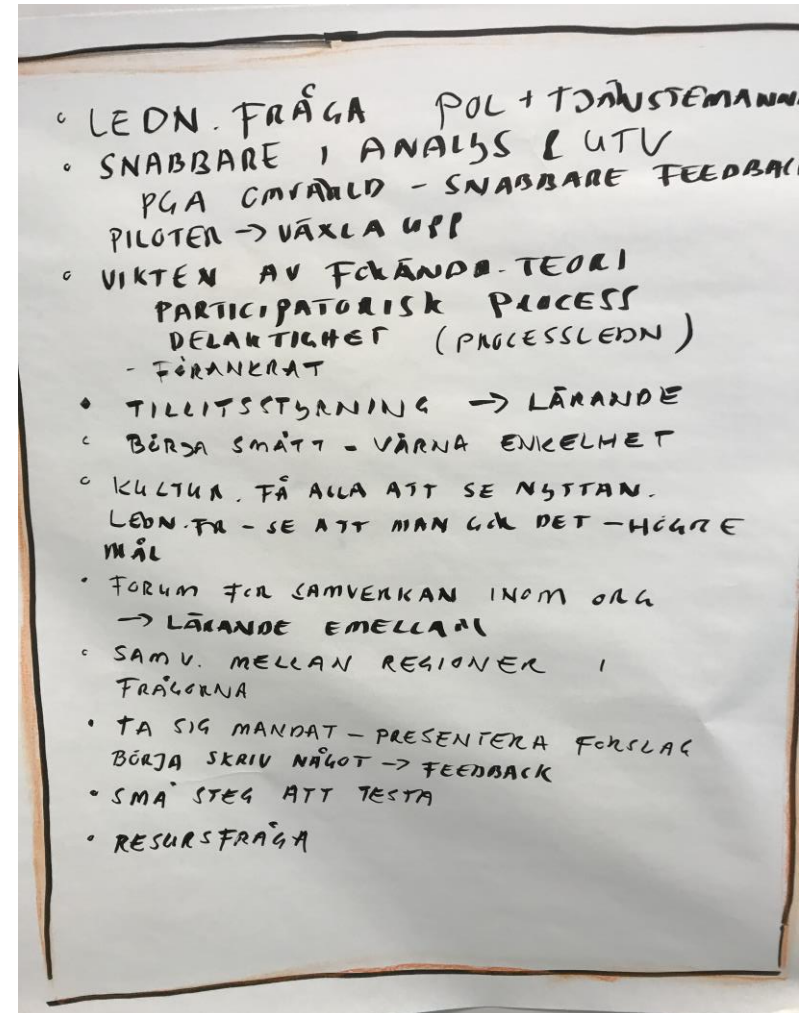 • LEDN. FRÅGA POL + TJÄNSTEMANN
• SNABBARE I ANALYS & UTV
PGA OMVÄRLD - SNABBARE FEEDBACK
PILOTER → VÄXLA UPP
• VIKTEN AV FÖRÄNDR. TEORI
PARTICIPATORISK PROCESS
DELAKTIGHET (PROCESSLEDN)
- FÖRANKRAT
• TILLITSSTYRNING → LÄRANDE
• BÖRJA SMÅTT - VÄRNA ENKELHET
• KULTUR. FÅ ALLA ATT SE NYTTAN.
LEDN.FR - SE ATT MAN GÖR DET - HÖGRE
MÅL
• FORUM FÖR SAMVERKAN INOM ORG
→ LÄRANDE EMELLAN
• SAMV. MELLAN REGIONER I
FRÅGORNA
• TA SIG MANDAT - PRESENTERA FÖRSLAG
BÖRJA SKRIV NÅGOT → FEEDBACK
• SMÅ STEG ATT TESTA
• RESURSFRÅGA